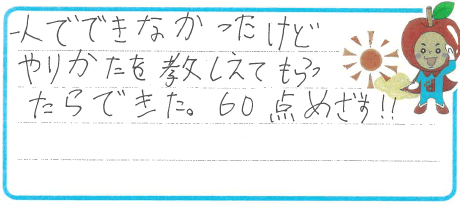 一人でできなかったけど
やりかたを教しえてもらっ
たらできた。60点めざす!!